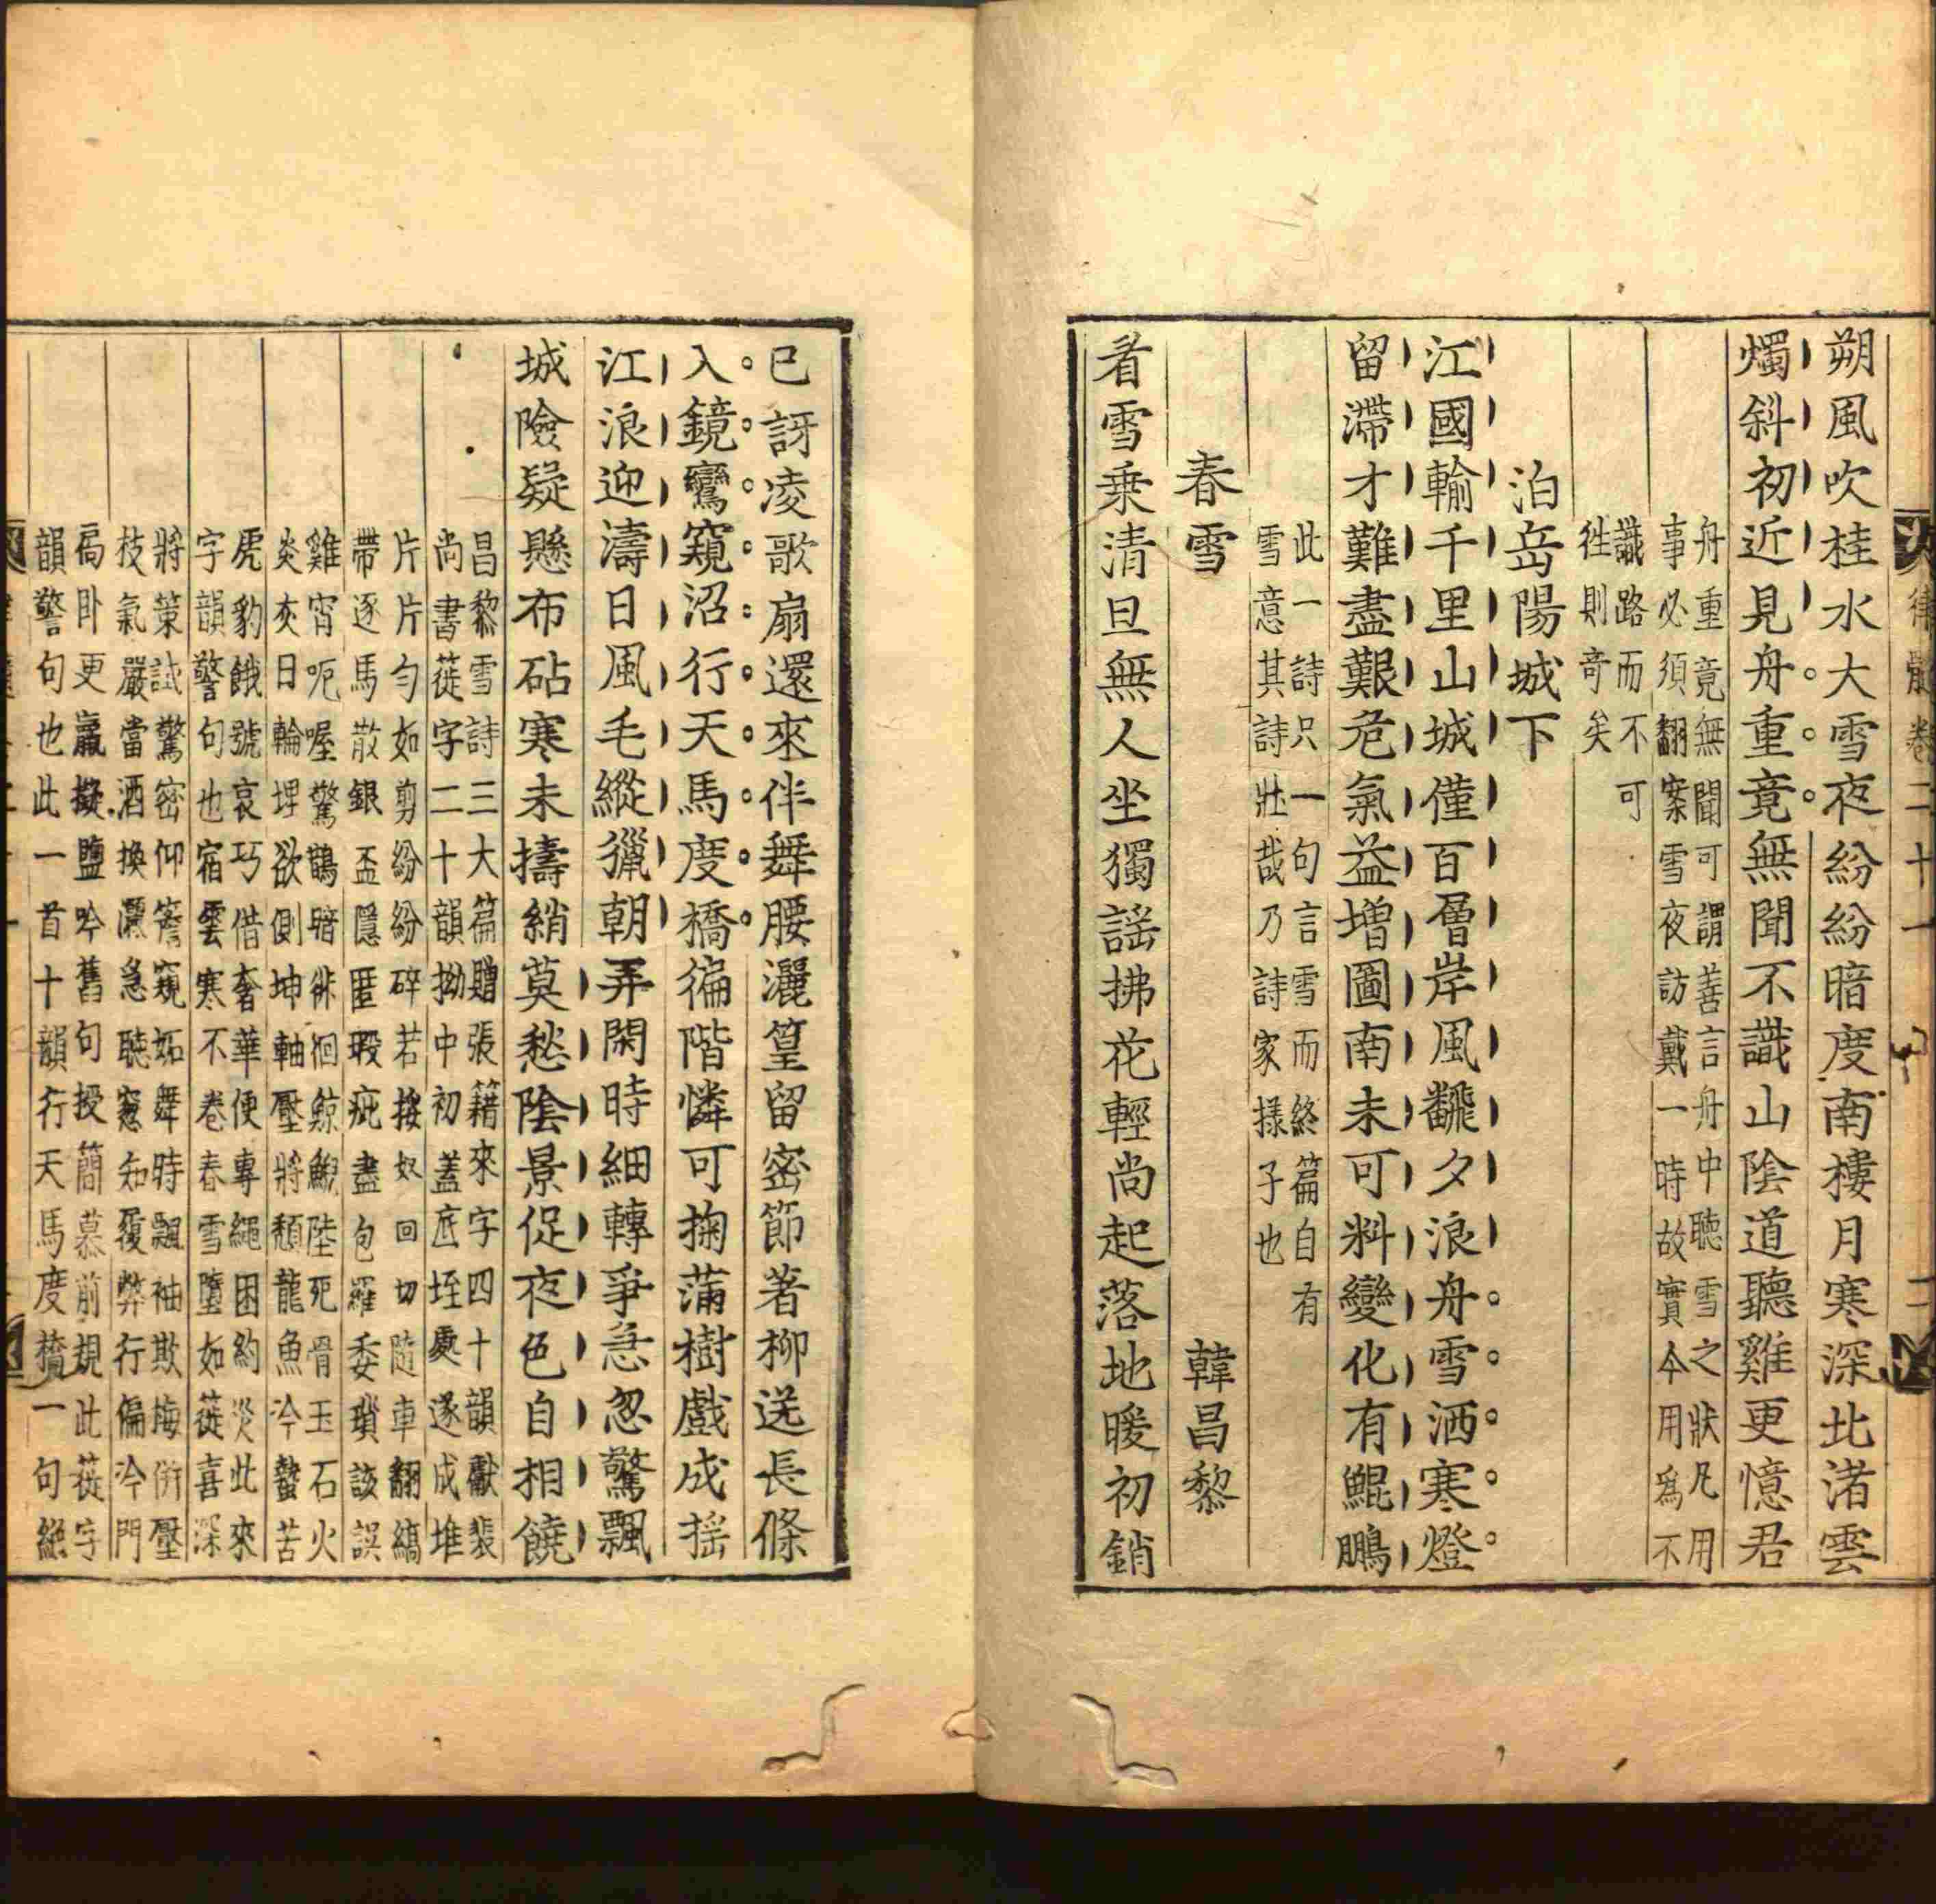 律髓卷二十一
二
朔風吹桂水大雪夜紛紛暗度南樓月寒深北渚雲
燭斜初近見舟重竟無聞不識山陰道聽雞更憶君
舟重竟無聞可謂善言舟中聽雪之狀凡用
事必須翻案雪夜訪戴一時故實今用爲不
識路而不可
徃則奇矣
泊岳陽城下
江國輸千里山城僅百層岸風飜夕浪舟雪洒寒燈
留滯才難盡艱危氣益增圖南未可料變化有鯤鵬
此一詩只一句言雪而終篇自有
雪意其詩壯哉乃詩家㨾子也
春雪 韓昌黎
看雪乗清旦無人坐獨謡拂花輕尚起落地暖初銷
已訝凌歌扇還來伴舞腰灑篁留密節著柳送長條
入鏡鸞窺沼行天馬度橋徧階憐可掬滿樹戲成揺
江浪迎濤日風毛縱獵朝弄閑時細轉爭急忽驚飄
城險疑懸布砧寒未擣綃莫愁陰景促夜色自相饒
昌黎雪詩三大篇贈張籍來字四十韻獻裴
尚書蓰字二十韻拗中初蓋底垤處遂成堆
片片勻如剪紛紛碎若挼奴回切隨車翻縞
帶逐馬散銀盃隱匿瑕疵盡包羅委瑣該誤
雞宵呃喔驚鵲暗徘徊鯨鯢陸死骨玉石火
炎灰日輪埋欲側坤軸壓將頽龍魚冷蟄苦
虎豹餓號哀巧借奢華便專繩困約災此來
字韻警句也宿雲寒不卷春雪墮如蓰喜深
將策試驚密仰簷窺妬舞時飄袖欺梅併壓
枝氣嚴當酒換灑急聽窻知履弊行偏冷門
扃卧更羸擬鹽吟舊句授簡慕前規此蓰字
韻警句也此一首十韻行天馬度橋一句絶